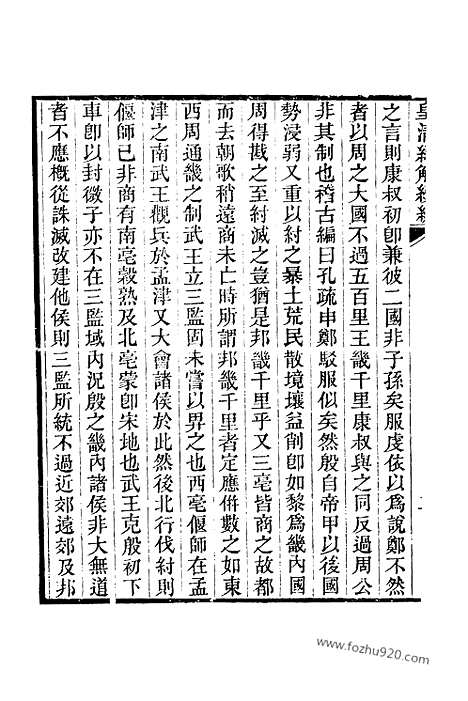 皇清經解續編
之言則康叔初卽兼彼二國非子孫矣服虔依以爲說鄭不然
者以周之大國不過五百里王畿千里康叔與之同反過周公
非其制也稽古編曰孔疏申鄭駁服似矣然殷自帝甲以後國
勢浸弱又重以紂之暴土荒民散境壤益削卽如黎爲畿內國
周得戡之至紂滅之豈猶是邦畿千里乎又三亳皆商之故都
而去朝歌稍遠商未亡時所謂邦畿千里者定應併數之如東
西周通畿之制武王立三監固未嘗以畀之也西亳偃師在孟
津之南武王觀兵於孟津又大會諸侯於此然後北行伐紂則
偃師已非商有南亳穀熟及北亳蒙卽宋地也武王克殷初下
車卽以封微子亦不在三監域內況殷之畿內諸侯非大無道
者不應概從誅滅改建他侯則三監所統不過近郊遠郊及邦
www.fozhu920.com